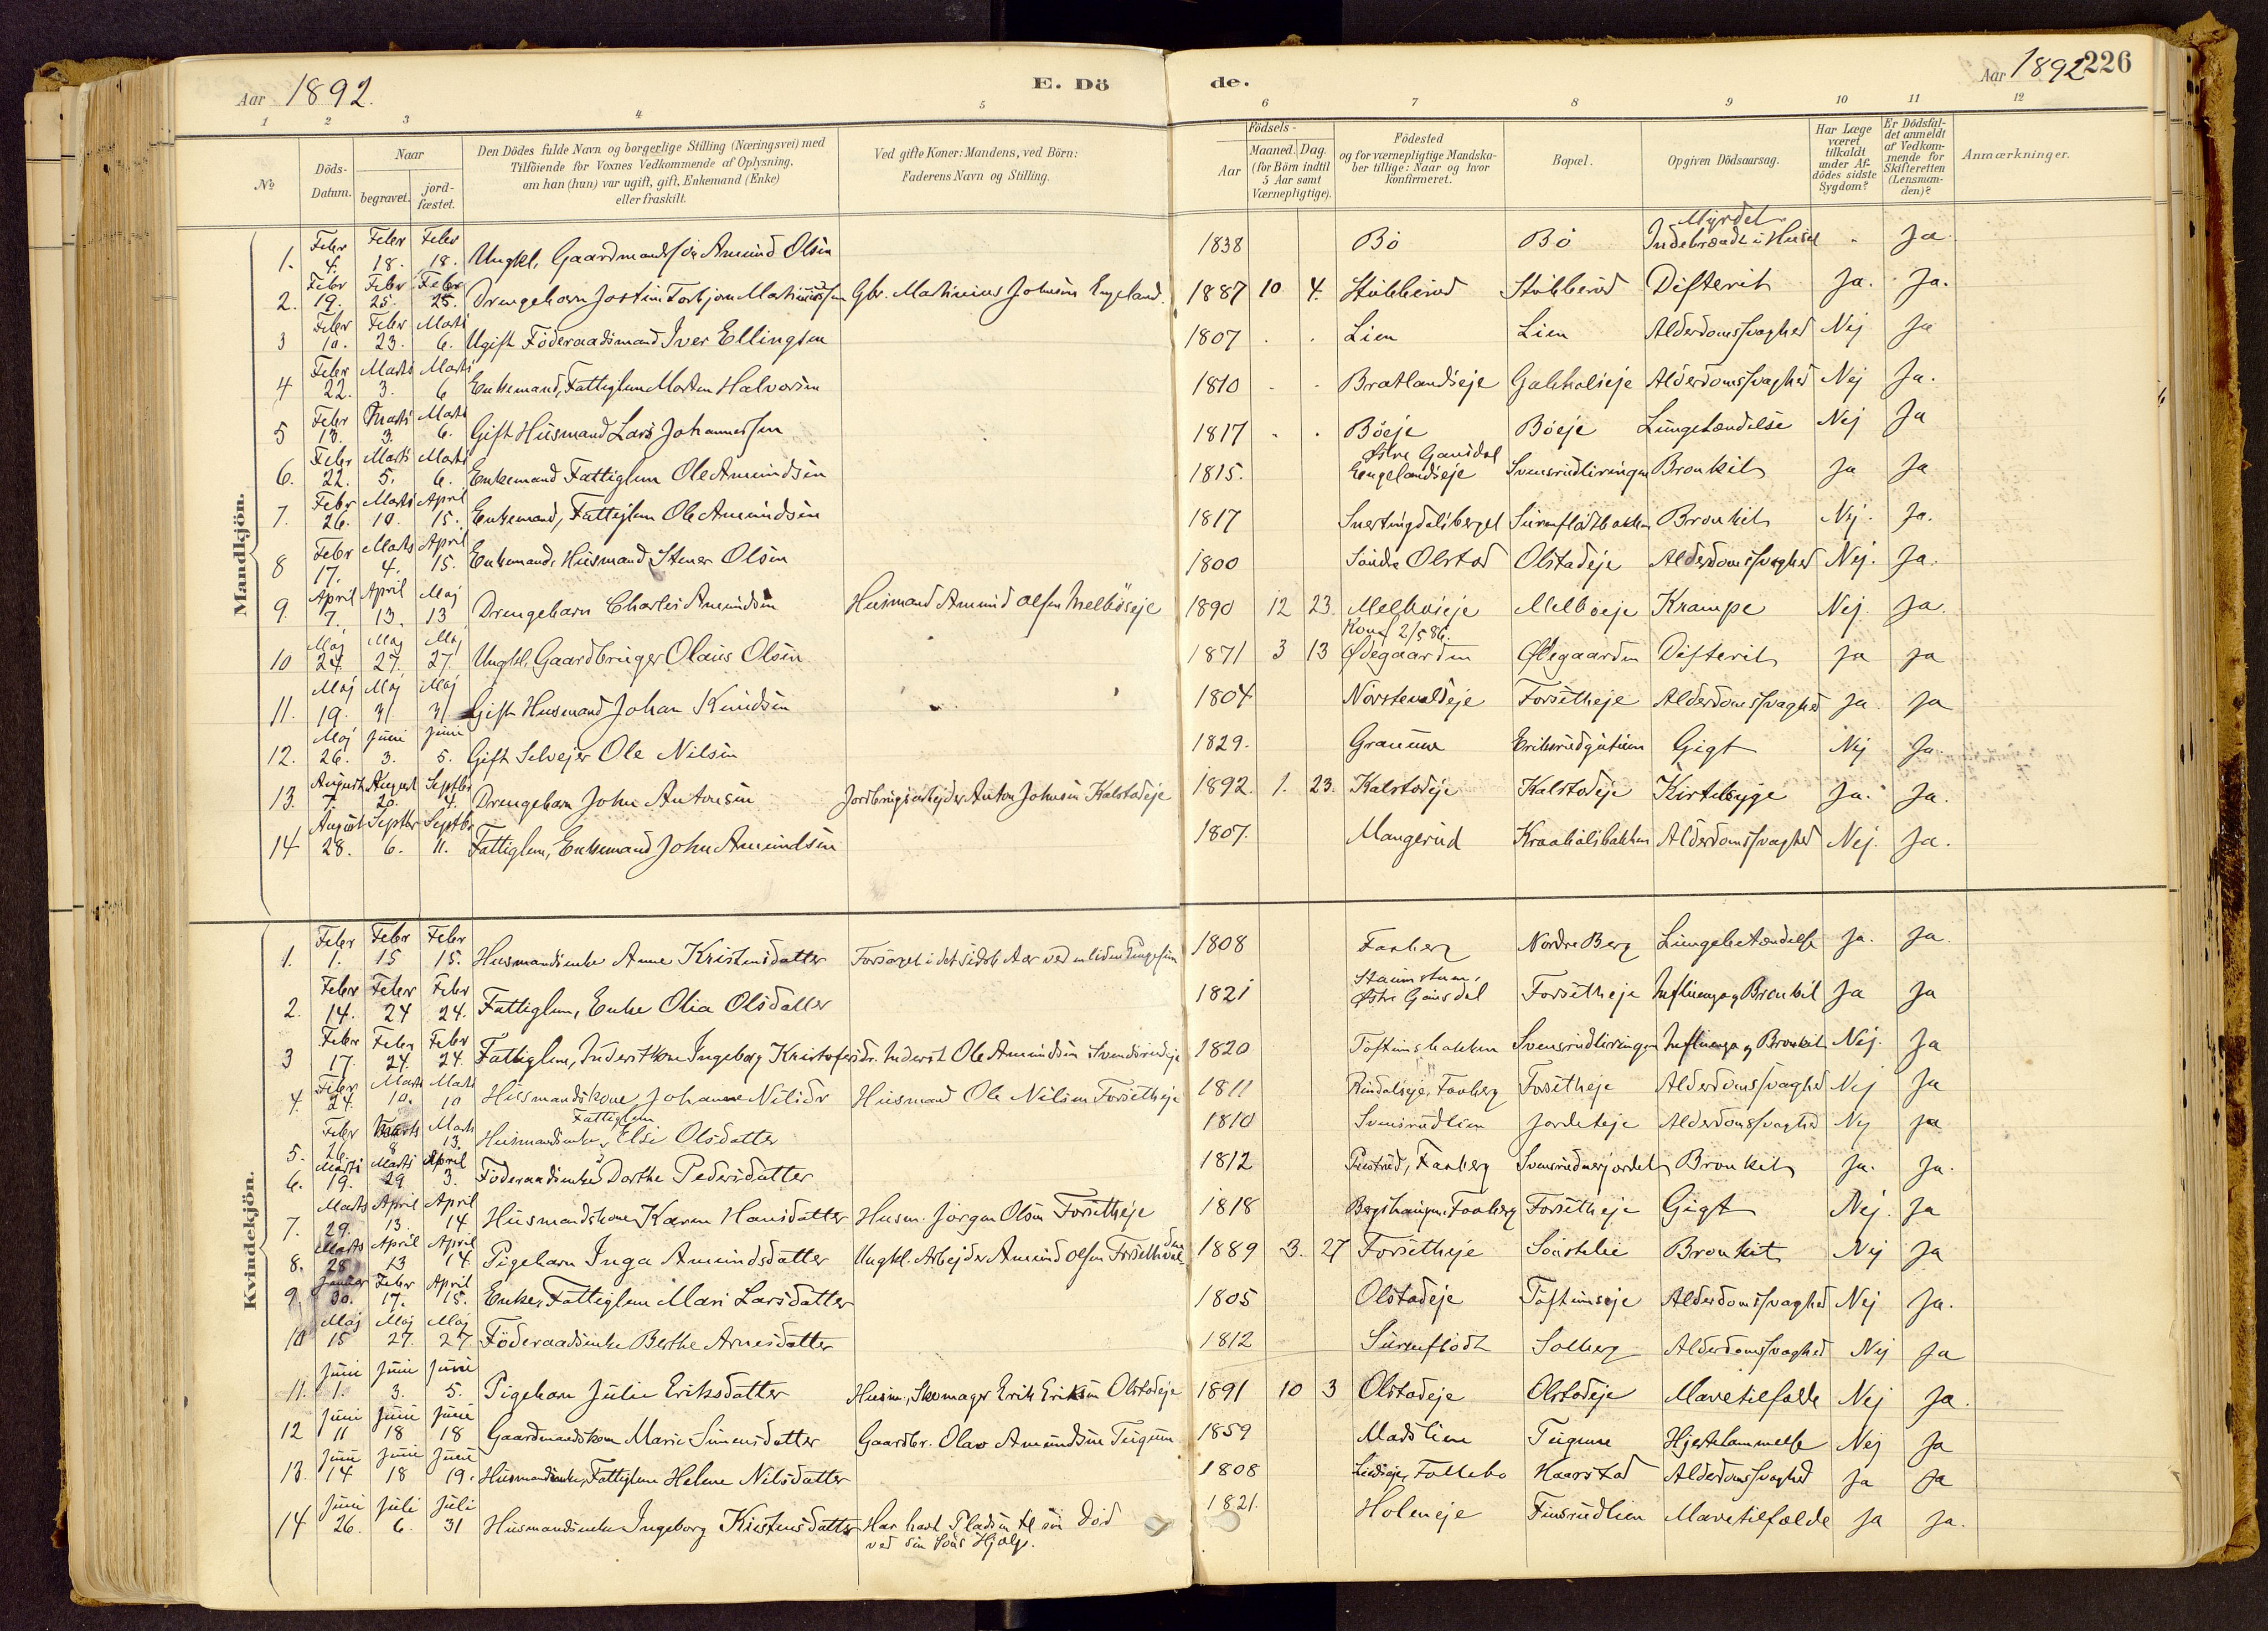 Aar 1892. E. Dö de. Aar 1892 226
1 2 3 4 5 6 7 8 9 10 11 12
№
Döds-Datum.
Naar
begravet.
jord-fæstet.
Den Dödes fulde Navn og borgerlige Stilling (Næringsvei) med
Tilföiende for Voxnes Vedkommende af Oplysning,
om han (hun) var ugift, gift, Enkemand (Enke)
eller fraskilt.
Ved gifte Koner: Mandens, ved Börn:
Faderens Navn og Stilling.
Födsels-
Aar
Maaned. Dag.
(for Börn indtil
5 Aar samt
Værnepligtige).
Födested
og for værnepligtige Mandska-
ber tillige: Naar og hvor
konfirmeret.
Bopæl.
Opgiven Dödsaarsag.
Har Læge
været
tilkaldt
under Af-
dödes sidste
Sygdom?
Er Dödsfal-
det anmeldt
af Vedkom-
mende for
Skifteretten
(Lensman-
den)?
Anmærkninger.
Mandkjön.
1. Febr 4. Febr 18. Febr 18. Ungkl. Gaardmandssön Amund Olsen 1838 Bö Bö Myrdet Indebrændt i Huset - Ja
2. Febr 19. Febr 25. Febr 25. Drengebarn Jostin Torbjørn Martiniussen Gbr. Martinius Johnsen Engeland. 1887 10 4. Stubberud Stubberud Difterit Ja. Ja.
3 Febr 10. Febr 23. Marts 6. Ugift Föderaadsmand Iver Ellingsen 1807 . . Lien Lien Alderdomssvaghed Nej Ja
4 Febr 22. Marts 3. Marts 6 Enkemand, Fattiglem Morten Halvorsen 1810 - - Bratlandseje Alderdomssvaghed Nej Ja.
5 Febr 13. Marts 3. Marts 6. Gift Husmand Lars Johannessen 1817 . . Böeje Böeje Lungebetændelse Nej Ja
6. Febr 22. Marts 5. Marts 6. Enkemand Fattiglem Ole Amundsen 1815. Østre Gausdal Engelandseje Svensrudliringen Bronkit Ja Ja
7. Febr 26. Marts 10. April 15. Enkemand, Fattiglem Ole Amundsen 1817 Snertingdalsberget Surnflödtbakken Bronkit Nej. Ja.
8 Febr 17. Marts 4. April 15. Enkemand, Husmand Stener Olsen 1800 Söndre Olstad Olstadeje Alderdomssvaghed Nej. Ja.
9. April 7. April 13. Maj 13 Drengebarn Charles Amundsen Husmand Amund Olsen Melböeje 1890 12 23. Melböeje Melböeje Krampe Nej. Ja.
10 Maj 24. Maj 27. Maj 27. Ungkl. Gaardbruger Olaus Olsen 1871 3 13 Konf 2/5 86. Ødegaarden Ødegaarden Difterit Ja Ja
11. Maj 19. Maj 31 Maj 31 Gift Husmand Johan Knudsen 1804 Forsetheje Alderdomssvaghed Ja Ja
12. Maj 26. Juni 3. Juni 5. Gift Selvejer Ole Nilsen 1829. Granum Gigt Nej Ja.
13. August 7. August 20. Septbr 4. Drengebarn John Antonsen Jordbrugsarbejder Anton Johnsen Kalstadeje 1892. 1. 23. Kalstadeje Kalstadeje Kirtelsyge Ja. Ja.
14 August 28. Septbr 6. Septbr 11. Fattiglem, Enkemand John Amundsen 1807. Mangerud Alderdomssvaghed Nej. Ja.
Kvindekjön.
1. Febr 1. Febr 15 Febr 15. Husmandsenke Anne Kristensdatter Forsörget i det sidste Aar ved en liden Pengesum 1808 Faaberg Nordre Berg Lungebetændelse Ja. Ja.
2. Febr 14. Febr 24 Febr 24. Fattiglem, Enke Olia Olsdatter 1821 Østre Gausdal Forsetheje Influenza og Bronkit Ja Ja
3 Febr 17. Febr 24. Febr 24. Fattiglem, Inderstkone Ingeborg Kristofersdr. Inderst Ole Amundsen Svendsrudeje 1820 Töftumsbakken Svensrudliringen Influenza og Bronkit Nej. Ja
4. Febr 24. Marts 10. Marts 10 Husmandskone Johanne Nilsdr Husmand Ole Nilsen Forsetheje 1811 Rindalseje, Faaberg Forsetheje Alderdomssvaghed Nej Ja
5. Febr 26. Marts 8 Marts 13. Husmandsenke, Fattiglem Elsi Olsdatter 1810 Svensrudlien Jordeteje Alderdomssvaghed Nej Ja
6. Marts 19. Marts 29 April 3. Föderaadsenke Dorthe Pedersdatter 1812 Faaberg Svensrudnerjordet Bronkit Ja. Ja.
7. Marts 29. April 13. April 14 Husmandskone Karen Hansdatter Husm. Jörgen Olsen Forsetheje 1818 Faaberg Forsetheje Gigt Nej. Ja
8. Marts 28 April 13 April 14. Pigebarn Inga Amundsdatter Ungkl. Arbejder Amund Olsen 1889 3. 27 Forsetheje Bronkit Nej Ja
9. Januar 30. Febr 17. April 15. Enke, Fattiglem Mari Larsdatter 1805 Olstadeje Töftumseje Alderdomssvaghed Nej Ja.
10 Maj 15 Maj 27. Maj 27. Föderaadsenke Berthe Arnesdatter 1812 Surnflödt Solberg Alderdomssvaghed Nej Ja
11. Juni 1. Juni 3. Juni 5. Pigebarn Julie Eriksdatter Husm., Skomager Erik Eriksen Olstadeje 1891 10 3 Olstadeje Olstadeje Mavetilfælde Nej Ja.
12 Juni 11 Juni 18 Juni 18 Gaardmandskone Marie Simensdatter Gaardbr. Olav Amundsen Tugum 1859 Madslien Tugum Hjertelammelse Nej Ja
13. Juni 14 Juni 18 Juni 19. Husmandsenke, Fattiglem Helene Nilsdatter 1808 Follebo Haarstad Alderdomssvaghed Ja Ja
14 Juni 26. Juli 6. Juli 31 Husmandsenke Ingeborg Kristensdatter Har havt Pladsen til sin Död 1821. Holeneje Finsrudlien Mavetilfælde Ja Ja.
ved sin Söns Hjælp.